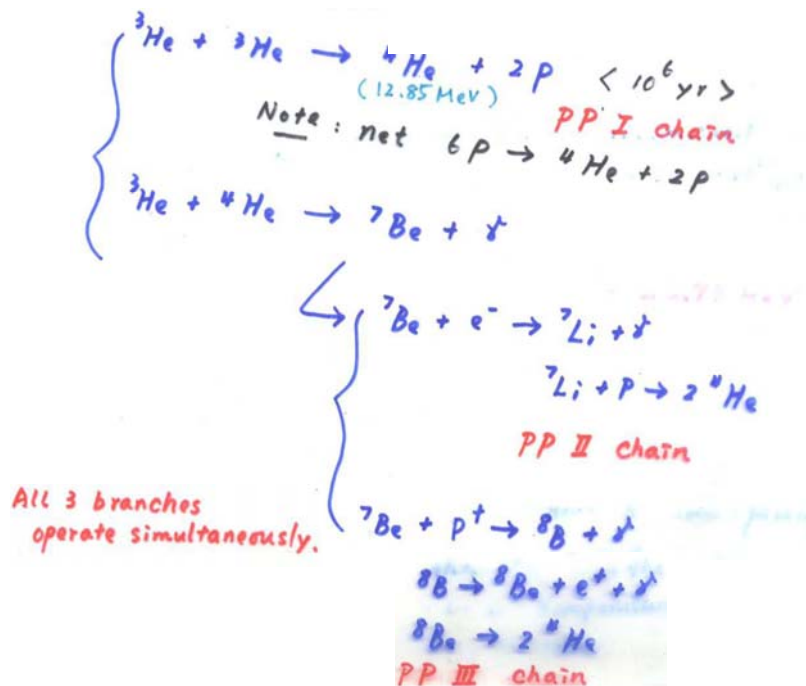 ³He + ³He → ⁴He + 2p <10⁶ yr>
(12.85 MeV)
PP I chain
Note: net 6p → ⁴He + 2p
³He + ⁴He → ⁷Be + γ
⁷Be + e⁻ → ⁷Li + γ
⁷Li + p → 2 ⁴He
PP II chain
All 3 branches
operate simultaneously.
⁷Be + p⁺ → ⁸B + γ
⁸B → ⁸Be + e⁺ + γ
⁸Be → 2 ⁴He
PP III chain